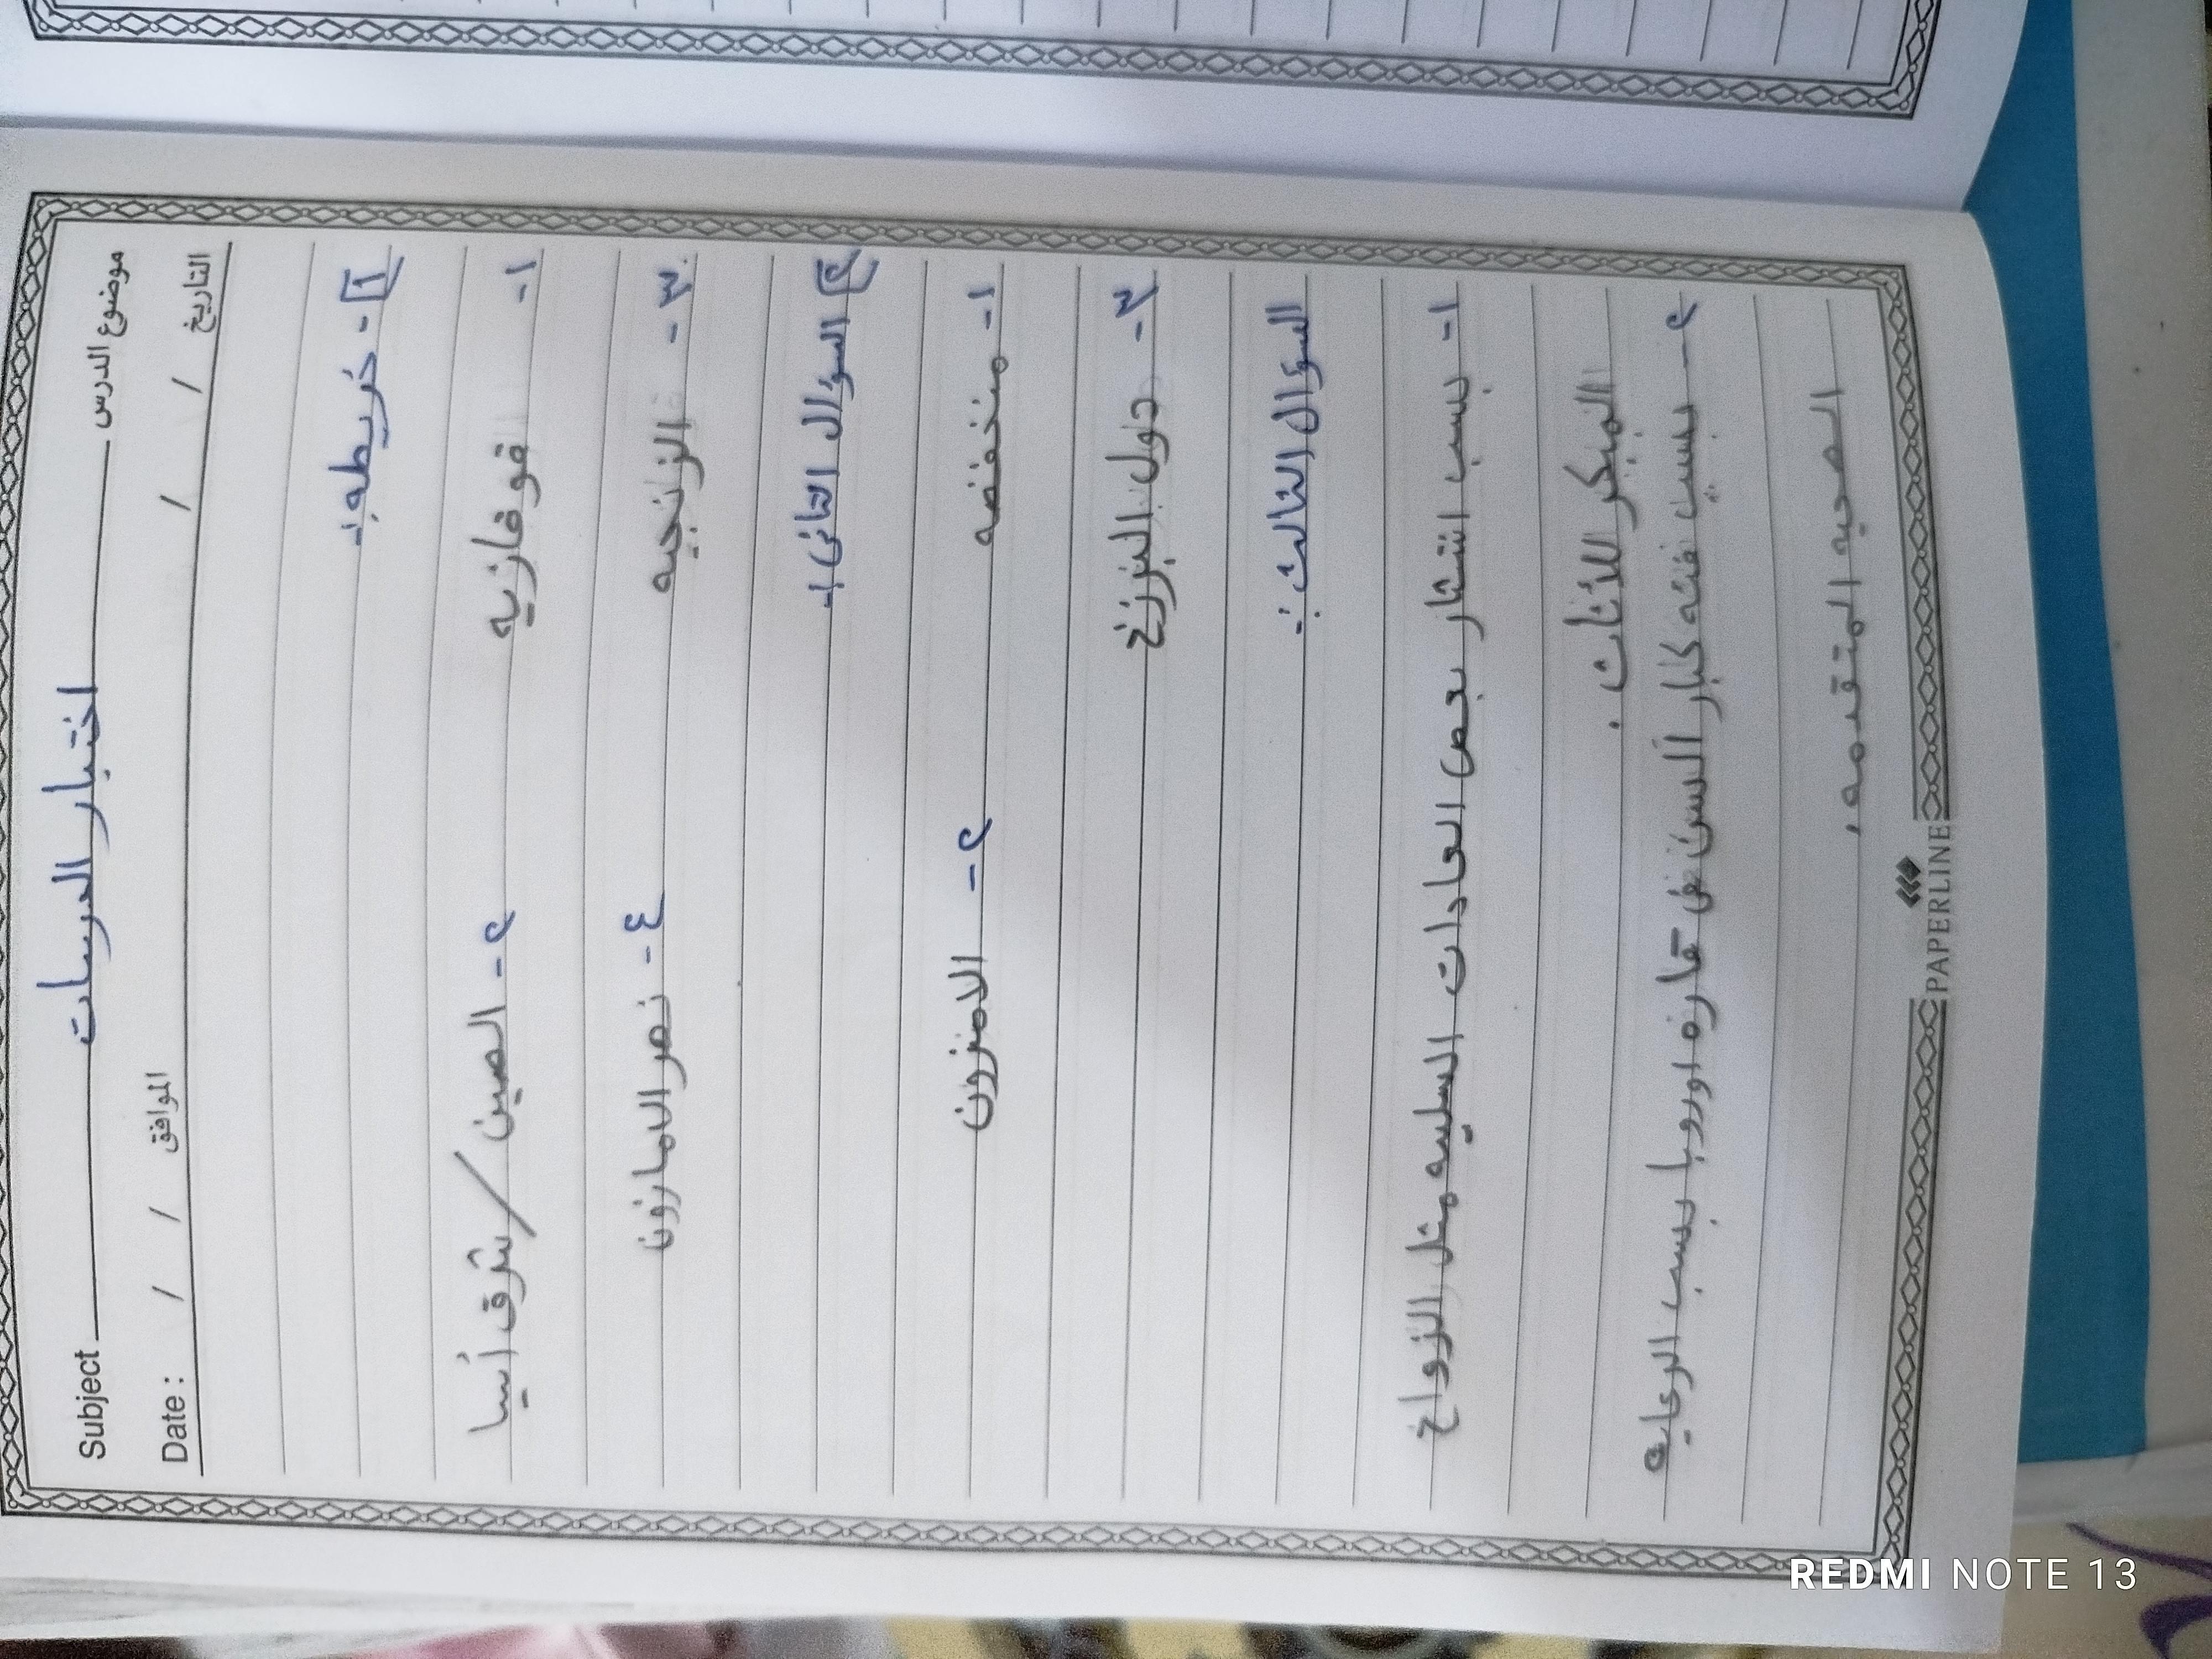 Subject اختبار الدرسات موضوع الدرس
Date : / / الموافق / / التاريخ
١ - خريطه :-
١- قوفازيه ٢- الصين / شرق أسيا
٣- الزنجيه ٤- نهر الامازون
٢ السؤال الثانى :-
١- منخفضه ٢- الامزون
٣- دول البرزخ
السؤال الثالث :-
١- بسبب انتشار بعض العادات السلبيه مثل الزواج
المبكر للأناث .
٢- بسبب فئه كبار السن فى قاره اوروبا بسبب الرعايه
الصحيه المتقدمه .
PAPERLINE
REDMI NOTE 13